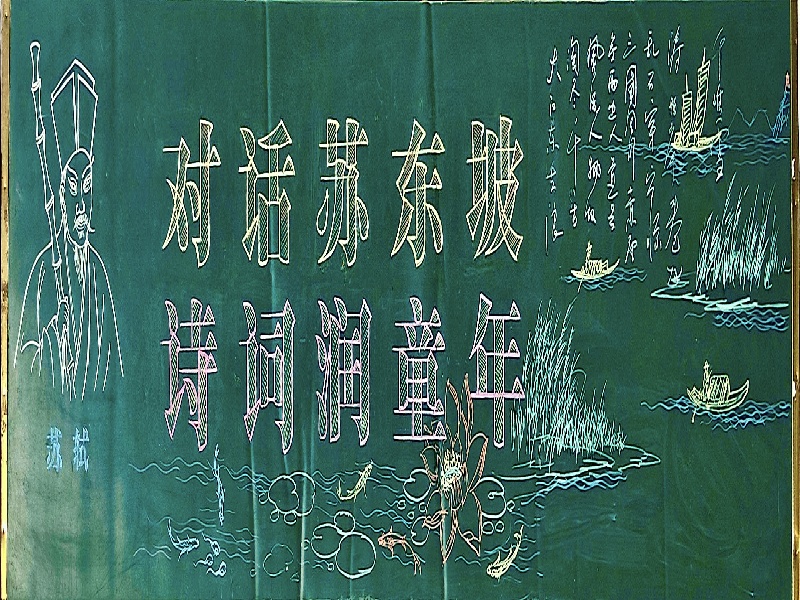 对话苏东坡
诗词润童年
苏轼
大江东去浪
淘尽千古
风流人物故
垒西边人道是
三国周郎赤壁
乱石穿空